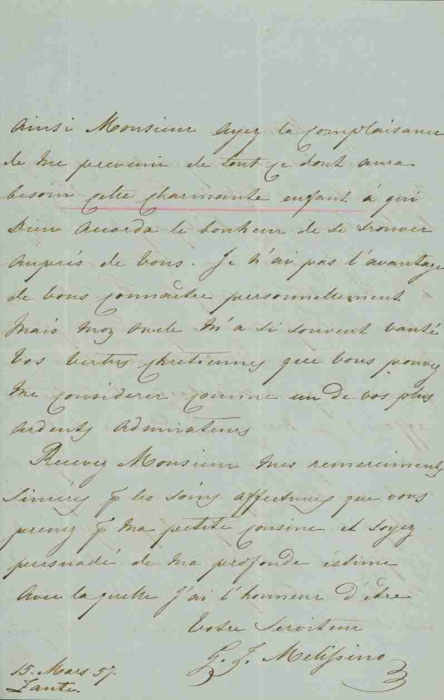 Ainsi Monsieur ayez la complaisance
de me prevenir de tout ce dont aura
besoin cette charmante enfant à qui
Dieu accorda le bonheur de se trouver
auprès de Vous. Je n'ai pas l'avantage
de Vous connaître personnellement
Mais Mon oncle M'a si souvent vanté
Vos vertus chrétiennes que Vous pouvez
Me considerer comme un de vos plus
ardents admirateurs
Recevez Monsieur Mes remerciments
Sincères p les soins affectueux que vous
prenez p Ma petite Cousine et soyez
persuadé de Ma profonde estime
Avec la quelle j'ai l'honneur d'être
Votre Serviteur
G. J. Melissino
15. Mars. 57.
Zante.